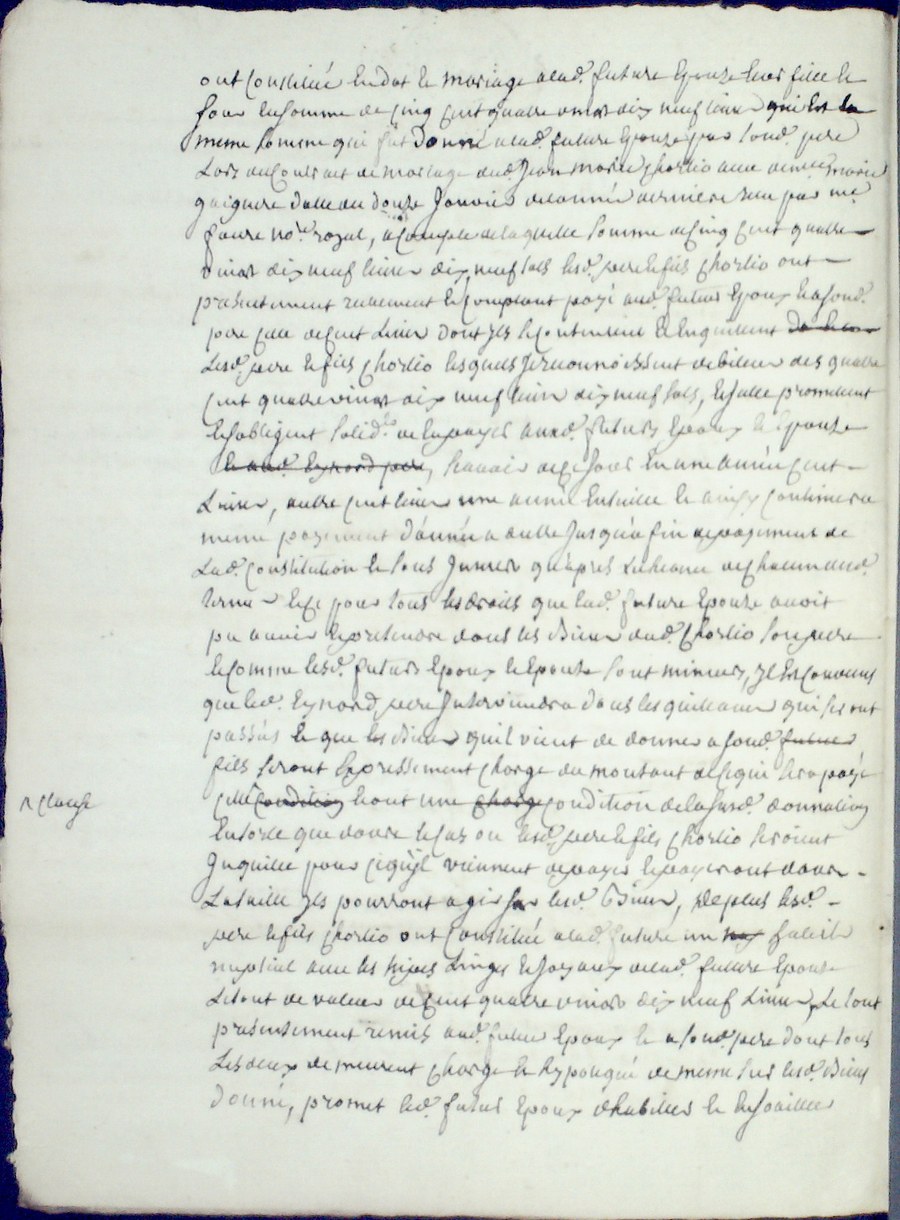 ont Constitué En dot Et mariage a lad. future Epouze leur fille Et
sœur la somme de Cinq Cent quatre vingt dix neuf livres qui Est la
meme somme qui fut Donné a lad. future Epouze par sond. pere
Lors du Contrait de mariage dud. Jean marie Chorlio avec marie
datte du douze Janvier de lanné derniere Recu par me
faure no.re royal, a Compte de laquelle somme de Cinq Cent quatre
vingt dix neuf livres dix neuf sols lesd. pere Et fils Chorlio ont
presentement reellement Et Comptant payé aud. futur Epoux Et a sond.
pere Celle de Cent Livres dont jls se Contentent Et En quittent
Lesd. pere Et fils Chorlio lesquels se reconnoissent debiteurs des quatre
Cent quatre vingt dix neuf livres dix neuf sols, Et promettent
Et sobligent solid.t de En payer auxd. futurs Epoux Et Epouze
Et aud. Eynard pere, scavoir de Ce jour En une année Cent
Livres, autre Cent livres une année Ensuitte Et ainsy Continuera
meme payement d'année a autre Jusqu'a fin de payement de
Lad. Constitution Et sans Interets qu'apres Lecheance de Chacun desd.
Termes Et Ce pour tous les droits que lad. future Epouze auoit
pu auoir Et pretendre dans les Biens dud. Chorlio son pere
Et Comme lesd. futurs Epoux Et Epouze sont mineurs, jl Est Convenu
que led. Eynard pere Interviendra dans les quittances qui seront
passées Et que les Biens qu'il vient de donner a sond. future
fils seront Expressement Charge du montant de Ce qui sera payé
Cette Condition Etant une Charge Condition de la susd. donnation
^ Clause
En sorte que dans le Cas ou lesd. pere Et fils Chorlio seroient
Inquieté pour Ce qu'jl viennent de payer Et payeront dans
La suitte jls pourront agir sur lesd. Biens, De plus lesd.
pere Et fils Chorlio ont Constitué a lad. future un
nuptial avec les Linges Et Joyaux de lad. future Epouze
Le tout de valeur de Cent quatre vingt dix neuf Livres, Le tout
presentement remis aud. futur Epoux Et a sond. pere dont tous
Les deux demeurent Charge Et hypotqué de meme sur lesd. Biens
Donné, promet led. futur Epoux d'habiller Et En joailler